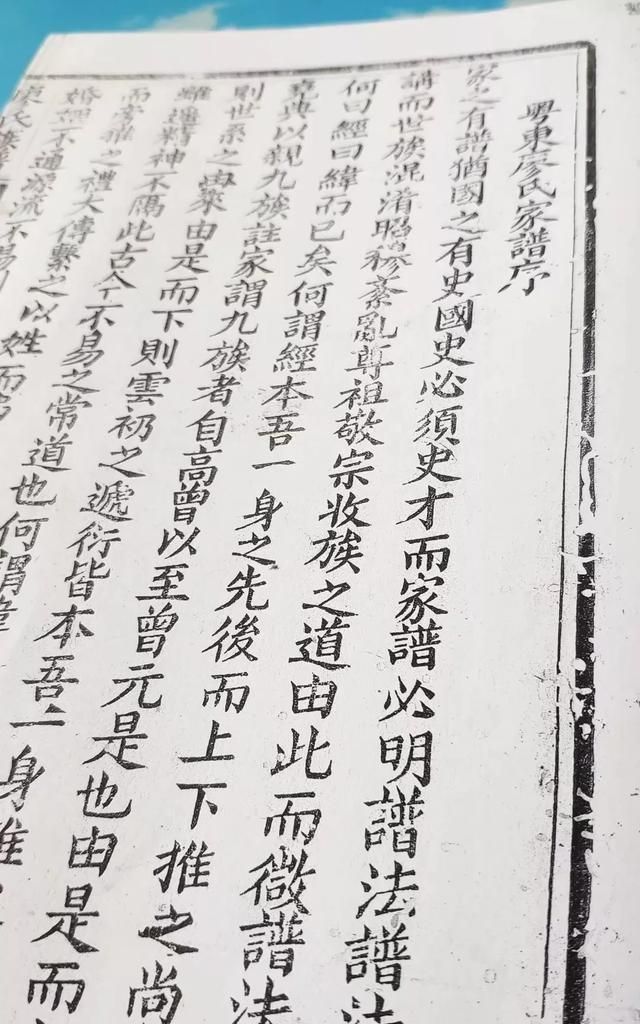 粤東廖氏家譜序
家之有譜猶國之有史國史必須史才而家譜必明譜法譜法
講而世族混淆昭穆紊亂尊祖敬宗收族之道由此而微譜法
何曰經曰緯而已矣何謂經本吾一身之先後而上下推之尚
堯典以親九族註家謂九族者自高曾以至曾元是也由是而
則世系之由來由是而下則雲礽之遞衍皆本吾一身
雖遠精神不隔此古今不易之常道也何謂
而旁推之禮大傳繫之以姓而
婚姻不通源流不易
氏